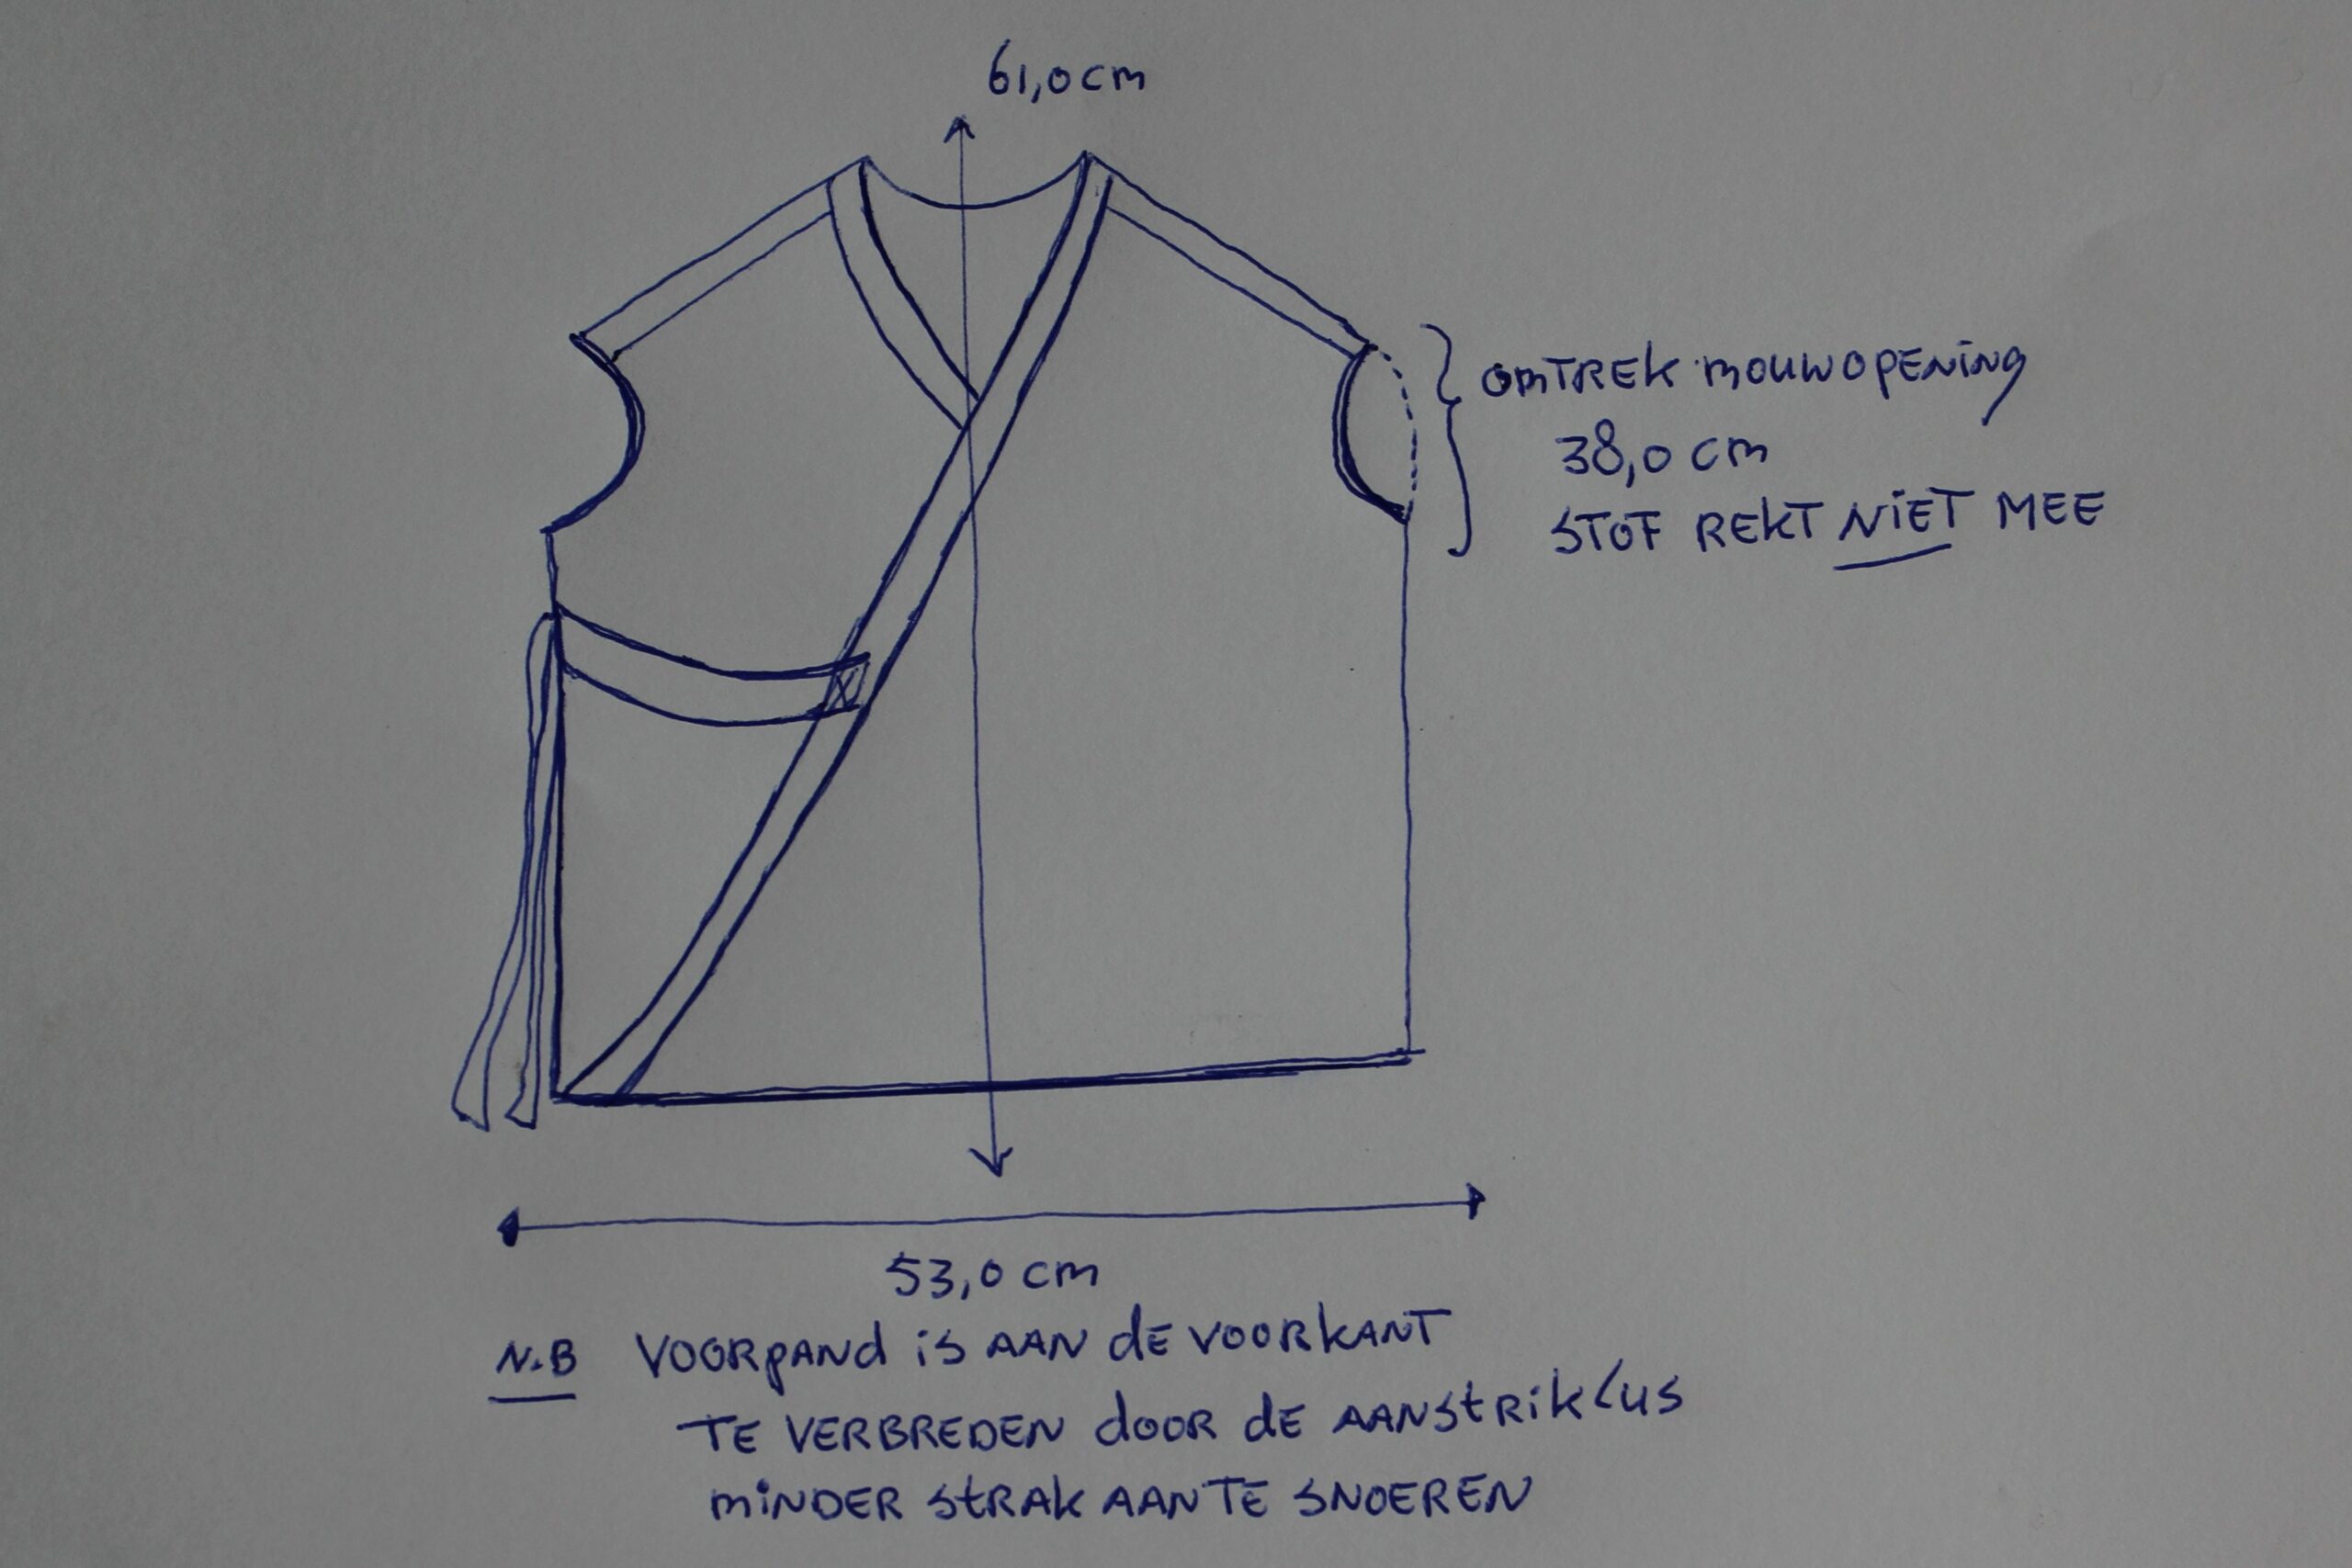 61,0 cm
OMTREK MOUWOPENING
38,0 cm
STOF REKT NIET MEE
53,0 cm
N.B VOORPAND IS AAN DE VOORKANT
TE VERBREDEN DOOR DE AANSTRIKLUS
MINDER STRAK AAN TE SNOEREN